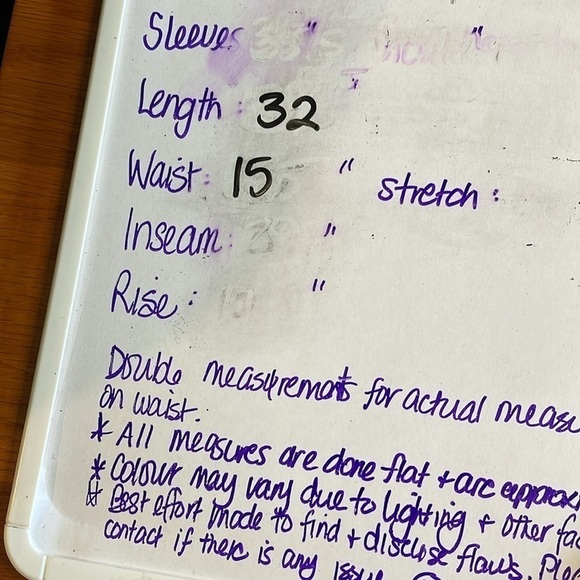 Sleeves "
Length : 32 "
Waist : 15 " Stretch :
Inseam : "
Rise : "
Double measurements for actual
on waist.
* All measures are done flat + are
* Colour may vary due to lighting + other
* Best effort made to find + disclose flaws.
contact if there is any issue